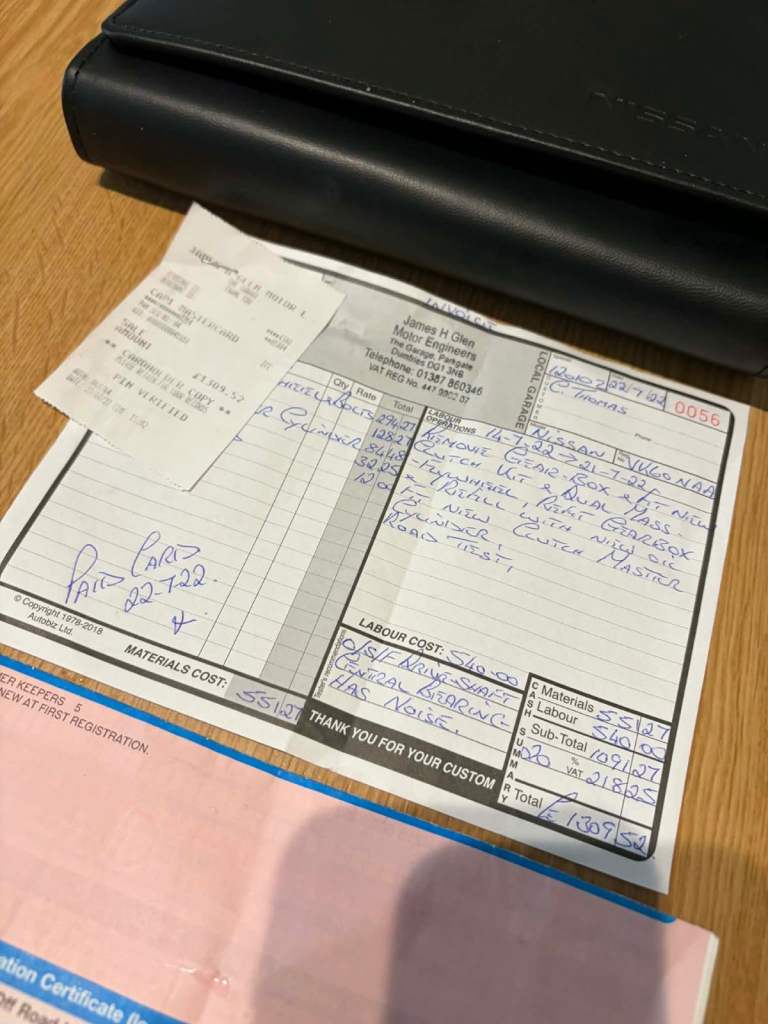 NISSAN
INVOICE
CARDHOLDER COPY
£1,309.52
SALE
AMOUNT
** CARDHOLDER COPY **
PIN VERIFIED
James H Glen
Motor Engineers
The Garage, Parkgate
Dumfries DG1 3NB
Telephone: 01387 860346
VAT REG No. 447
LOCAL GARAGE
22/7/22
0056
C. THOMAS
NISSAN
Qty Rate Total
BOLTS 294.27
CYLINDER 128.27
84.48
32.25
12.00
LABOUR
OPERATIONS
14-7-22 → 21-7-22
REMOVE GEAR-BOX & FIT NEW
CLUTCH KIT & DUAL MASS
FLYWHEEL, REFIT GEARBOX
& REFILL WITH NEW OIL
FIT NEW CLUTCH MASTER
CYLINDER,
ROAD TEST,
PAID CARD
22-7-22.
© Copyright 1978-2018
Autobiz Ltd.
MATERIALS COST: 551.27
LABOUR COST: 540.00
O/S/F DRIVE-SHAFT
CENTRAL BEARING
HAS NOISE.
THANK YOU FOR YOUR CUSTOM
CASH SUMMARY
Materials 551.27
Labour 540.00
Sub-Total 1091.27
20 % VAT 218.25
Total £ 1309.52
ER KEEPERS 5
NEW AT FIRST REGISTRATION.
ation Certificate
Off Road